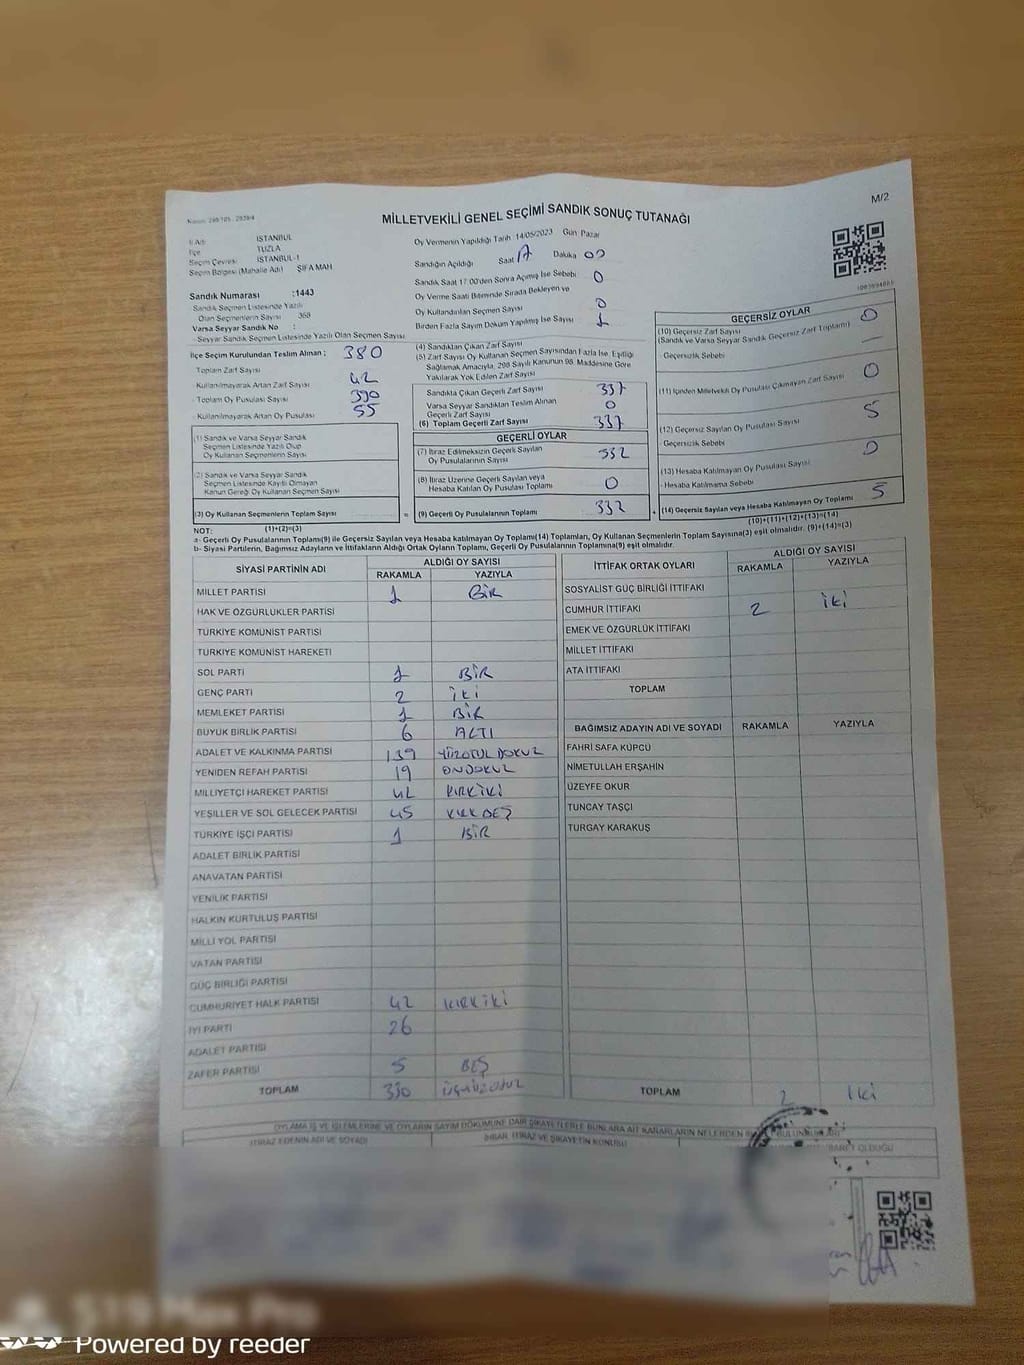 M/2
MİLLETVEKİLİ GENEL SEÇİMİ SANDIK SONUÇ TUTANAĞI
İl Adı İSTANBUL
İlçe TUZLA
Seçim Çevresi İSTANBUL-1
Seçim Bölgesi (Mahalle Adı) ŞİFA MAH
Sandık Numarası :1443
Sandık Seçmen Listesinde Yazılı
Olan Seçmenlerin Sayısı 368
Varsa Seyyar Sandık No :
- Seyyar Sandık Seçmen Listesinde Yazılı Olan Seçmen Sayısı
İlçe Seçim Kurulundan Teslim Alınan ; 380
Toplam Zarf Sayısı
- Kullanılmayarak Artan Zarf Sayısı 42
- Toplam Oy Pusulası Sayısı 390
- Kullanılmayarak Artan Oy Pusulası 55
(1) Sandık ve Varsa Seyyar Sandık
Seçmen Listesinde Yazılı Olup
Oy Kullanan Seçmenlerin Sayısı
(2) Sandık ve Varsa Seyyar Sandık
Seçmen Listesinde Kayıtlı Olmayan
Kanun Gereği Oy Kullanan Seçmen Sayısı
(3) Oy Kullanan Seçmenlerin Toplam Sayısı =
(1)+(2)=(3)
Oy Vermenin Yapıldığı Tarih 14/05/2023 Gün Pazar
Sandığın Açıldığı Saat 17 Dakika 00
Sandık Saat 17:00'den Sonra Açılmış İse Sebebi 0
Oy Verme Saati Bitiminde Sırada Bekleyen ve
Oy Kullandırılan Seçmen Sayısı 0
Birden Fazla Sayım Döküm Yapılmış İse Sayısı 1
(4) Sandıktan Çıkan Zarf Sayısı
(5) Zarf Sayısı Oy Kullanan Seçmen Sayısından Fazla İse, Eşitliği
Sağlamak Amacıyla, 298 Sayılı Kanunun 98. Maddesine Göre
Yakılarak Yok Edilen Zarf Sayısı
Sandıkta Çıkan Geçerli Zarf Sayısı 337
Varsa Seyyar Sandıktan Teslim Alınan
Geçerli Zarf Sayısı 0
(6) Toplam Geçerli Zarf Sayısı 337
GEÇERLİ OYLAR
(7) İtiraz Edilmeksizin Geçerli Sayılan
Oy Pusulalarının Sayısı 332
(8) İtiraz Üzerine Geçerli Sayılan veya
Hesaba Katılan Oy Pusulası Toplamı 0
(9) Geçerli Oy Pusulalarının Toplamı 332 +
GEÇERSİZ OYLAR
(10) Geçersiz Zarf Sayısı 0
(Sandık ve Varsa Seyyar Sandık Geçersiz Zarf Toplamı)
- Geçersizlik Sebebi —
(11) İçinden Milletvekili Oy Pusulası Çıkmayan Zarf Sayısı 0
(12) Geçersiz Sayılan Oy Pusulası Sayısı 5
- Geçersizlik Sebebi
(13) Hesaba Katılmayan Oy Pusulası Sayısı 0
- Hesaba Katılmama Sebebi
(14) Geçersiz Sayılan veya Hesaba Katılmayan Oy Toplamı 5
(10)+(11)+(12)+(13)=(14)
NOT:
a- Geçerli Oy Pusulalarının Toplamı(9) ile Geçersiz Sayılan veya Hesaba katılmayan Oy Toplamı(14) Toplamları, Oy Kullanan Seçmenlerin Toplam Sayısına(3) eşit olmalıdır. (9)+(14)=(3)
b- Siyasi Partilerin, Bağımsız Adayların ve İttifakların Aldığı Ortak Oyların Toplamı, Geçerli Oy Pusulalarının Toplamına(9) eşit olmalıdır.
SİYASİ PARTİNİN ADI ALDIĞI OY SAYISI
RAKAMLA YAZIYLA
MİLLET PARTİSİ 1 BİR
HAK VE ÖZGÜRLÜKLER PARTİSİ
TÜRKİYE KOMÜNİST PARTİSİ
TÜRKİYE KOMÜNİST HAREKETİ
SOL PARTİ 1 BİR
GENÇ PARTİ 2 İKİ
MEMLEKET PARTİSİ 1 BİR
BÜYÜK BİRLİK PARTİSİ 6 ALTI
ADALET VE KALKINMA PARTİSİ 139 YÜZOTUZDOKUZ
YENİDEN REFAH PARTİSİ 19 ONDOKUZ
MİLLİYETÇİ HAREKET PARTİSİ 42 KIRKİKİ
YEŞİLLER VE SOL GELECEK PARTİSİ 45 KIRKBEŞ
TÜRKİYE İŞÇİ PARTİSİ 1 BİR
ADALET BİRLİK PARTİSİ
ANAVATAN PARTİSİ
YENİLİK PARTİSİ
HALKIN KURTULUŞ PARTİSİ
MİLLİ YOL PARTİSİ
VATAN PARTİSİ
GÜÇ BİRLİĞİ PARTİSİ
CUMHURİYET HALK PARTİSİ 42 KIRKİKİ
İYİ PARTİ 26
ADALET PARTİSİ
ZAFER PARTİSİ 5 BEŞ
TOPLAM 330 ÜÇYÜZOTUZ
İTTİFAK ORTAK OYLARI ALDIĞI OY SAYISI
RAKAMLA YAZIYLA
SOSYALİST GÜÇ BİRLİĞİ İTTİFAKI
CUMHUR İTTİFAKI 2 İKİ
EMEK VE ÖZGÜRLÜK İTTİFAKI
MİLLET İTTİFAKI
ATA İTTİFAKI
TOPLAM
BAĞIMSIZ ADAYIN ADI VE SOYADI RAKAMLA YAZIYLA
FAHRİ SAFA KÜPCÜ
NİMETULLAH ERŞAHİN
ÜZEYFE OKUR
TUNCAY TAŞÇI
TURGAY KARAKUŞ
TOPLAM 2 İki
OYLAMA İŞ VE İŞLEMLERİNE VE OYLARIN SAYIM DÖKÜMÜNE DAİR ŞİKAYETLERLE BUNLARA AİT KARARLARIN NELERDEN
İTİRAZ EDENİN ADI VE SOYADI İHBAR, İTİRAZ VE ŞİKAYETİN KONUSU OLDUĞU
S19 Max Pro
Powered by reeder